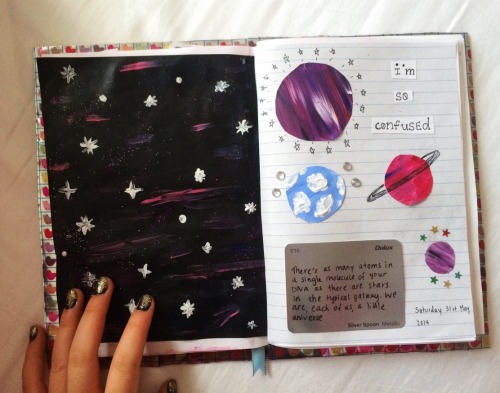 i'm
so
confused
Dulux
There's as many atoms in
a single molecule of your
DNA as there are stars
in the typical galaxy. We
are, each of us, a little
universe
Silver Spoon Metallic
Saturday 31st May
2014